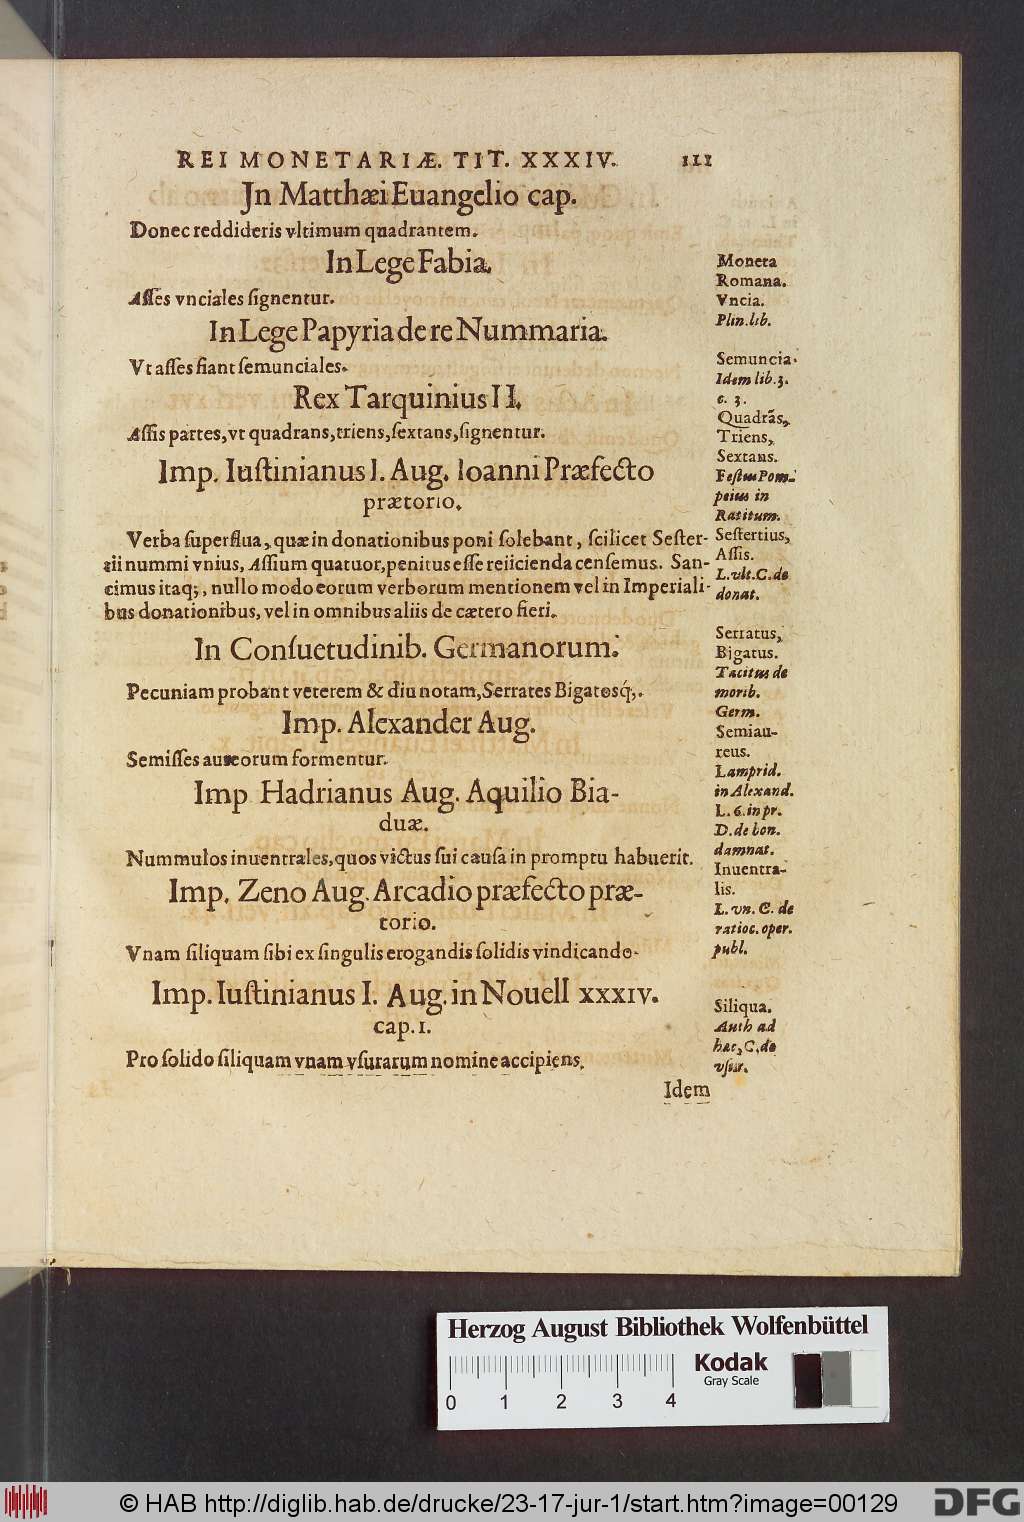 REI MONETARIÆ. TIT. XXXIV. 111
Jn Matthæi Euangelio cap.
Donec reddideris vltimum quadrantem.
In Lege Fabia.
Asſes vnciales ſignentur.
In Lege Papyria de re Nummaria.
Vt aſſes fiant ſemunciales.
Rex Tarquinius II.
Aſſis partes, vt quadrans, triens, ſextans, ſignentur.
Imp. Iuſtinianus I. Aug. Ioanni Præfecto
prætorio.
Verba ſuperflua, quæ in donationibus poni ſolebant, ſcilicet Seſter-
tii nummi vnius, Aſſium quatuor, penitus eſſe reiicienda cenſemus. San-
cimus itaq;, nullo modo eorum verborum mentionem vel in Imperiali-
bus donationibus, vel in omnibus aliis de cætero fieri.
In Conſuetudinib. Germanorum.
Pecuniam probant veterem & diu notam, Serrates Bigatosq́;.
Imp. Alexander Aug.
Semiſſes aureorum formentur.
Imp Hadrianus Aug. Aquilio Bia-
duæ.
Nummulos inuentrales, quos victus ſui cauſa in promptu habuerit.
Imp. Zeno Aug. Arcadio præfecto præ-
torio.
Vnam ſiliquam ſibi ex ſingulis erogandis ſolidis vindicando.
Imp. Iuſtinianus I. Aug. in Nouell XXXIV.
cap. 1.
Pro ſolido ſiliquam vnam vſurarum nomine accipiens.
Idem
Moneta
Romana.
Vncia.
Plin. lib.
Semuncia.
Idem lib. 3.
c. 3.
Quadrãs,
Triens,
Sextans.
Feſtus Pom-
peius in
Ratitum.
Seſtertius,
Aſſis.
L. vlt. C. de
donat.
Serratus,
Bigatus.
Tacitus de
morib.
Germ.
Semiau-
reus.
Lamprid.
in Alexand.
L. 6. in pr.
D. de bon.
damnat.
Inuentra-
lis.
L. vn. C. de
ratioc. oper.
publ.
Siliqua.
Auth ad
hæc, C. de
vſur.
Herzog August Bibliothek Wolfenbüttel
0 1 2 3 4
Kodak
Gray Scale
© HAB http://diglib.hab.de/drucke/23-17-jur-1/start.htm?image=00129
DFG